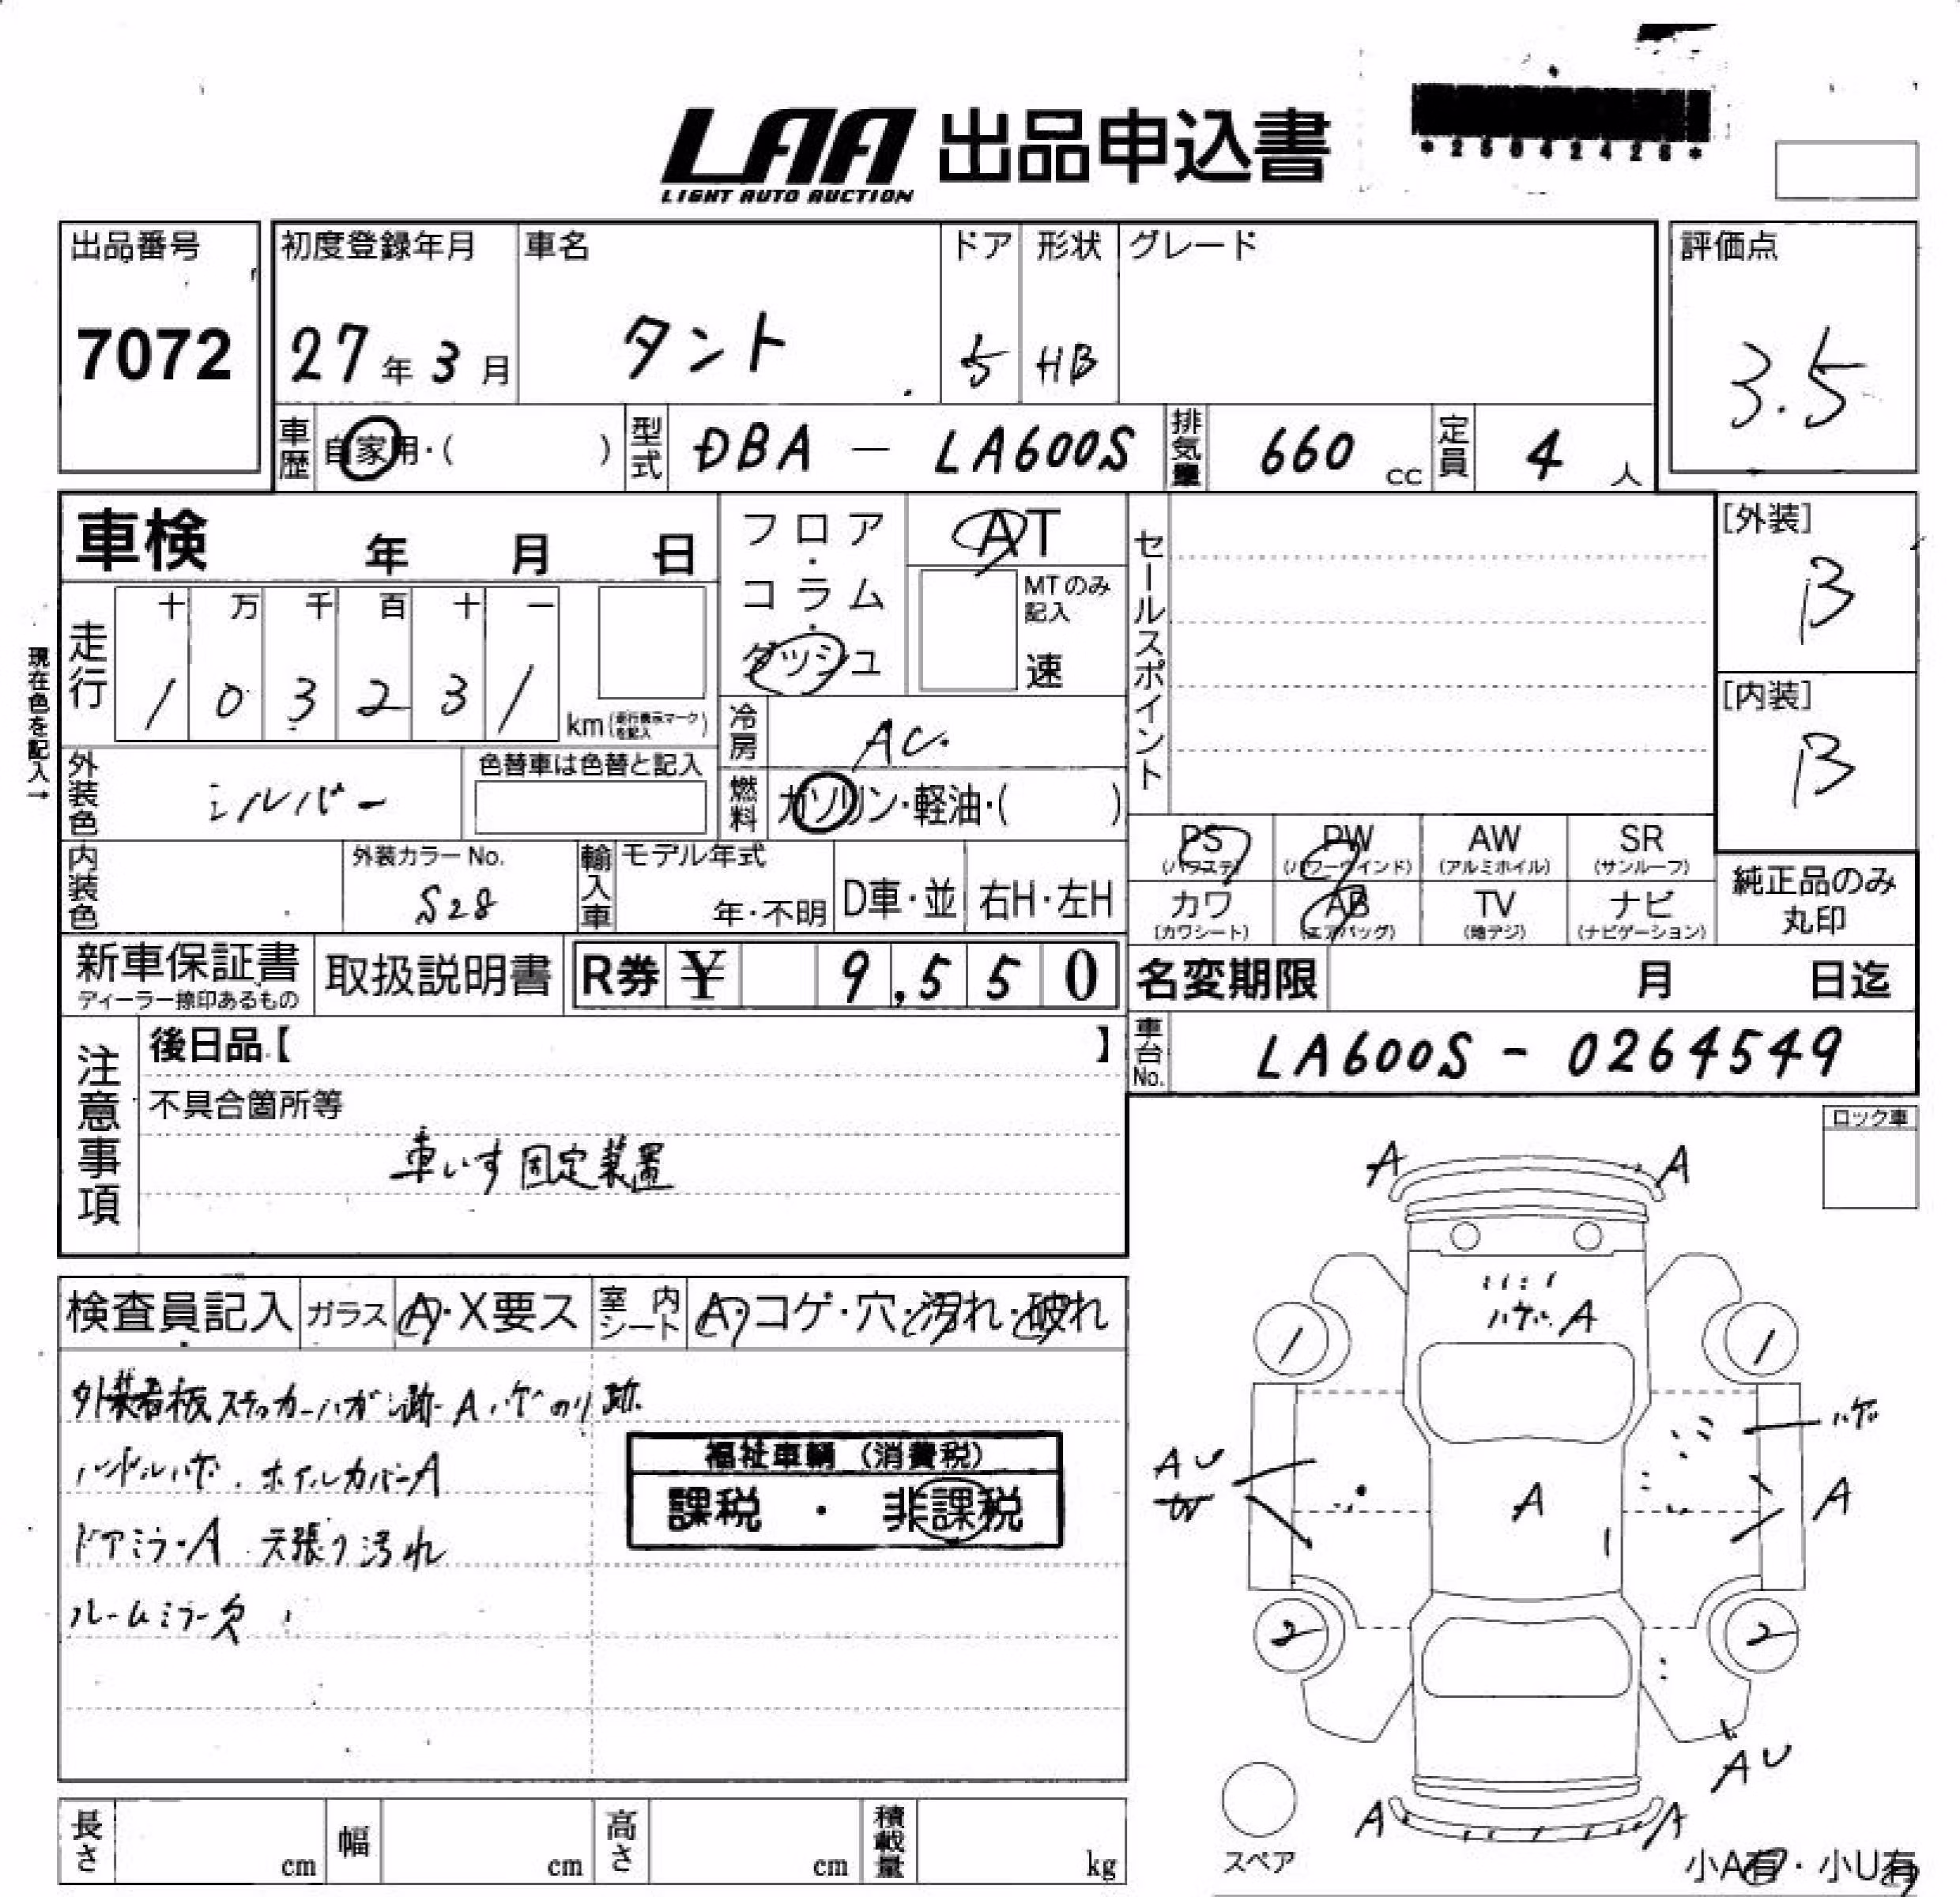 LAA 出品申込書
LIGHT AUTO AUCTION
*25042426*
出品番号 初度登録年月 車名 ドア 形状 グレード 評価点
7072 27年3月 タント 5 HB 3.5
車歴 自家用・( ) 型式 DBA - LA600S 排気量 660 cc 定員 4 人
車検 年 月 日 フロア・コラム・ダッシュ AT セールスポイント [外装]
B
MTのみ記入
速
現在色を記入→
走行 十 万 千 百 十 一
1 0 3 2 3 1 km(走行表示マークを記入)
[内装]
B
冷房 AC.
外装色 シルバー 色替車は色替と記入 燃料 ガソリン・軽油・( )
PS (パワステ) PW (パワーウインド) AW (アルミホイル) SR (サンルーフ)
カワ (カワシート) AB (エアバッグ) TV (地デジ) ナビ (ナビゲーション)
純正品のみ
丸印
内装色 外装カラーNo. S28 輸入車 モデル年式 年・不明 D車・並 右H・左H
新車保証書 取扱説明書 R券 ¥ 9,550 名変期限 月 日迄
ディーラー捺印あるもの
車台No. LA600S - 0264549
注意事項 後日品【 】
不具合箇所等
車いす固定装置
ロック車
A A
検査員記入 ガラス A・X要ス 室内シート A・コゲ・穴・汚れ・破れ
外装看板ステッカーハガシ跡 A ハゲ のり跡
ハンドルハゲ. ホイルカバーA
ドアミラーA 天張り汚れ
ルームミラー欠
福祉車輌 (消費税)
課税 ・ 非課税
ハゲ A
1 1
ハゲ
AU
A
A
2 2
AU
A A
スペア
小A有・小U有
長さ cm 幅 cm 高さ cm 積載量 kg